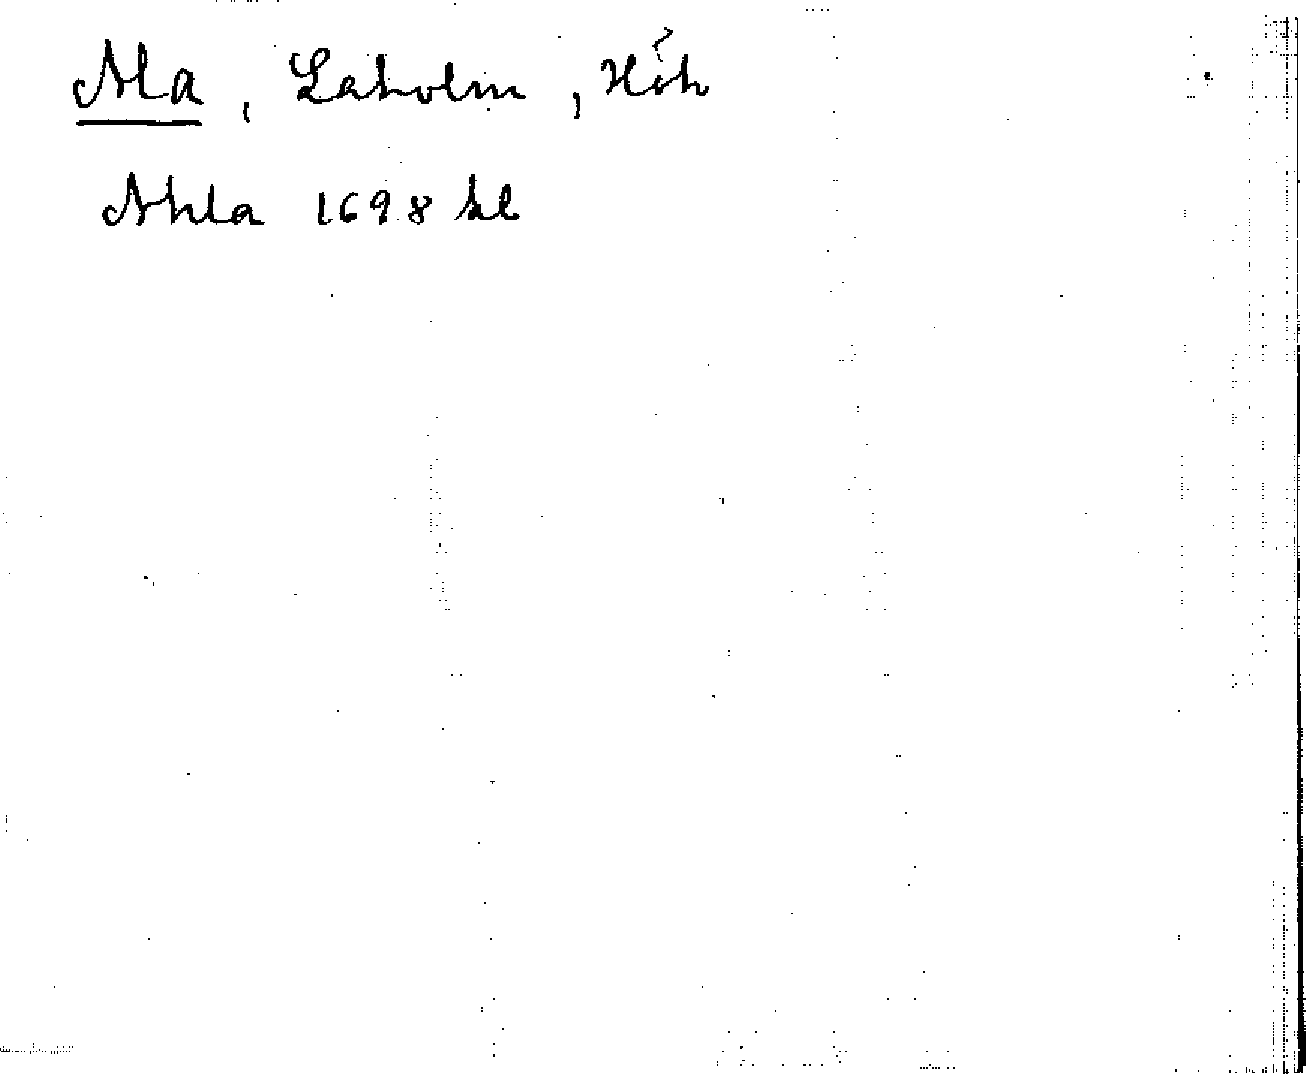 Ala, Laholm, Hök
Ahla 1698 kl